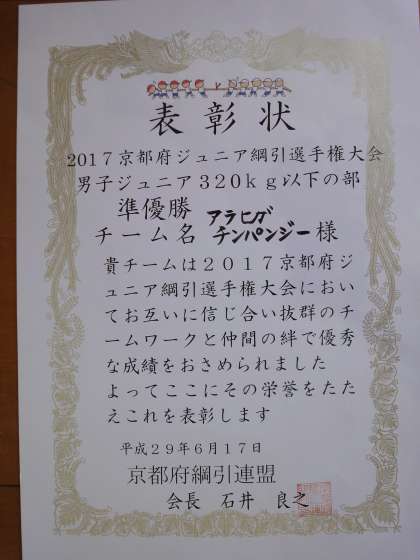 表彰状
2017京都府ジュニア綱引選手権大会
男子ジュニア320kg以下の部
準優勝 アラヒガ
チーム名 チンパンジー 様
貴チームは2017京都府ジ
ュニア綱引選手権大会におい
てお互いに信じ合い抜群のチ
ームワークと仲間の絆で優秀
な成績をおさめられました
よってここにその栄誉をたた
えこれを表彰します
平成29年6月17日
京都府綱引連盟
会長 石井 良之